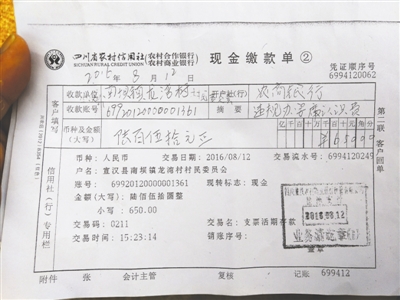 四川省农村信用社(农村合作银行)(农村商业银行) 现金缴款单②
SICHUAN RURAL CREDIT UNION
凭证顺序号
6994120062
8月12日
客户填写
收款单位 开户社(行) 农商银行
收款账号 69920120000001361 摘要
币种及金额(大写) 陆百伍拾元正
亿千百十万千百十元角分
¥65000
第二联 客户回单
信用社(行)专用栏
币种:人民币 交易日期:2016/08/12 交易流水号:6994120249
户名:宣汉县南坝镇龙湾村村民委员会
账号:69920120000001361 现转标志:现金
金额(大写):陆佰伍拾圆整
小写:650.00
交易码:0211 交易名称:支票活期存款
交易时间:15:23:14 销账序号:
2016.08.12
业务清讫章
附件 张 会计主管 复核 记账 699412